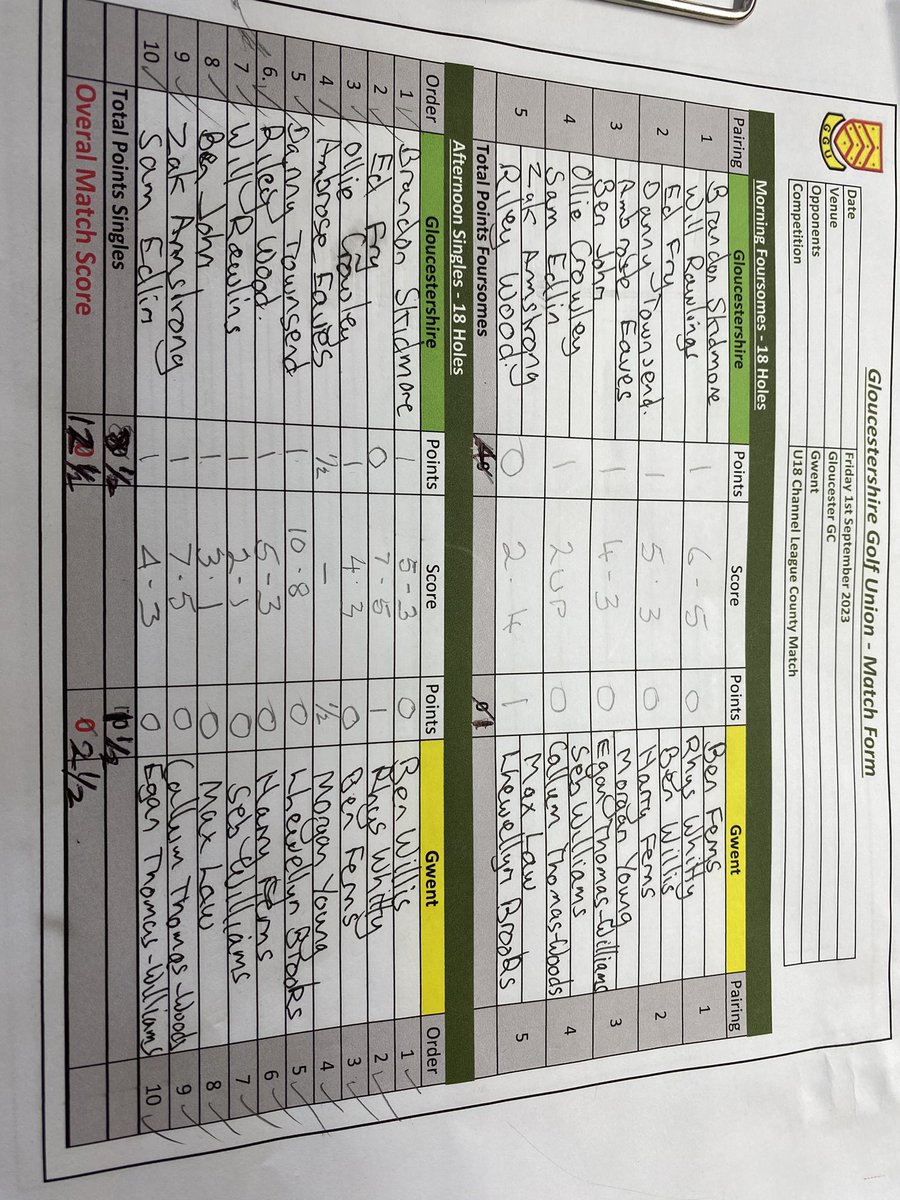 GGU
Gloucestershire Golf Union - Match Form
Date Friday 1st September 2023
Venue Gloucester GC
Opponents Gwent
Competition U18 Channel League County Match
Morning Foursomes - 18 Holes
Pairing Gloucestershire Points Score Points Gwent Pairing
1 Brandon Skidmore 1 6-5 0 Ben Ferns 1
Will Rawlings Rhys Whitty
2 Ed Fry 1 5.3 0 Ben Willis 2
Danny Townsend. Harry Ferns
3 Ambrose Eaves 1 4-3 0 Morgan Young 3
Ben John Egan Thomas-Williams
4 Ollie Crowley 1 2UP 0 Seb Williams 4
Sam Edlin Callum Thomas-Woods
5 Zak Armstrong 0 2.4 1 Max Law 5
Riley Wood. Lhewellyn Brooks
Total Points Foursomes 4 1
Afternoon Singles - 18 Holes
Order Gloucestershire Points Score Points Gwent Order
1 Brandon Skidmore 1 5-3 0 Ben Willis 1
2 Ed Fry 0 7.5 1 Rhys Whitty 2
3 Ollie Crowley 1 4.3 0 Ben Ferns 3
4 Ambrose Eaves 1/2 - 1/2 Morgan Young 4
5 Danny Townsend 1 10.8 0 Lhewellyn Brooks 5
6 Riley Wood. 1 5-3 0 Harry Ferns 6
7 Will Rawlins 1 2-1 0 Seb Williams 7
8 Ben John 1 3.1 0 Max Law 8
9 Zak Armstrong 1 7.5 0 Callum Thomas-Woods 9
10 Sam Edlin 1 4-3 0 Egan Thomas-Williams 10
Total Points Singles 8 1/2 1 1/2
Overal Match Score 12 1/2 2 1/2